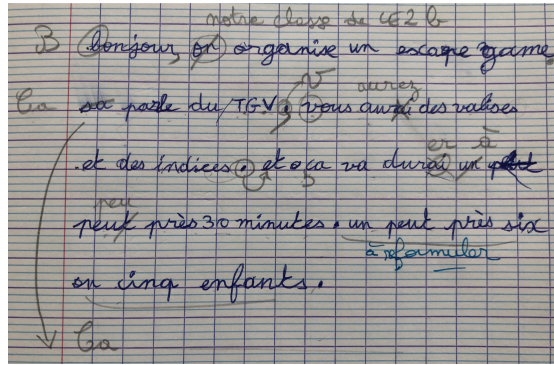 notre classe de CE2 b
B bonjour, on organise un escape game
Ca sa parle du TGV. V vous aurez des valises
et des indices. et ça va durai er à un peut
peut peu près 30 minutes. un peut près six
à reformuler
on cinq enfants.
Ca